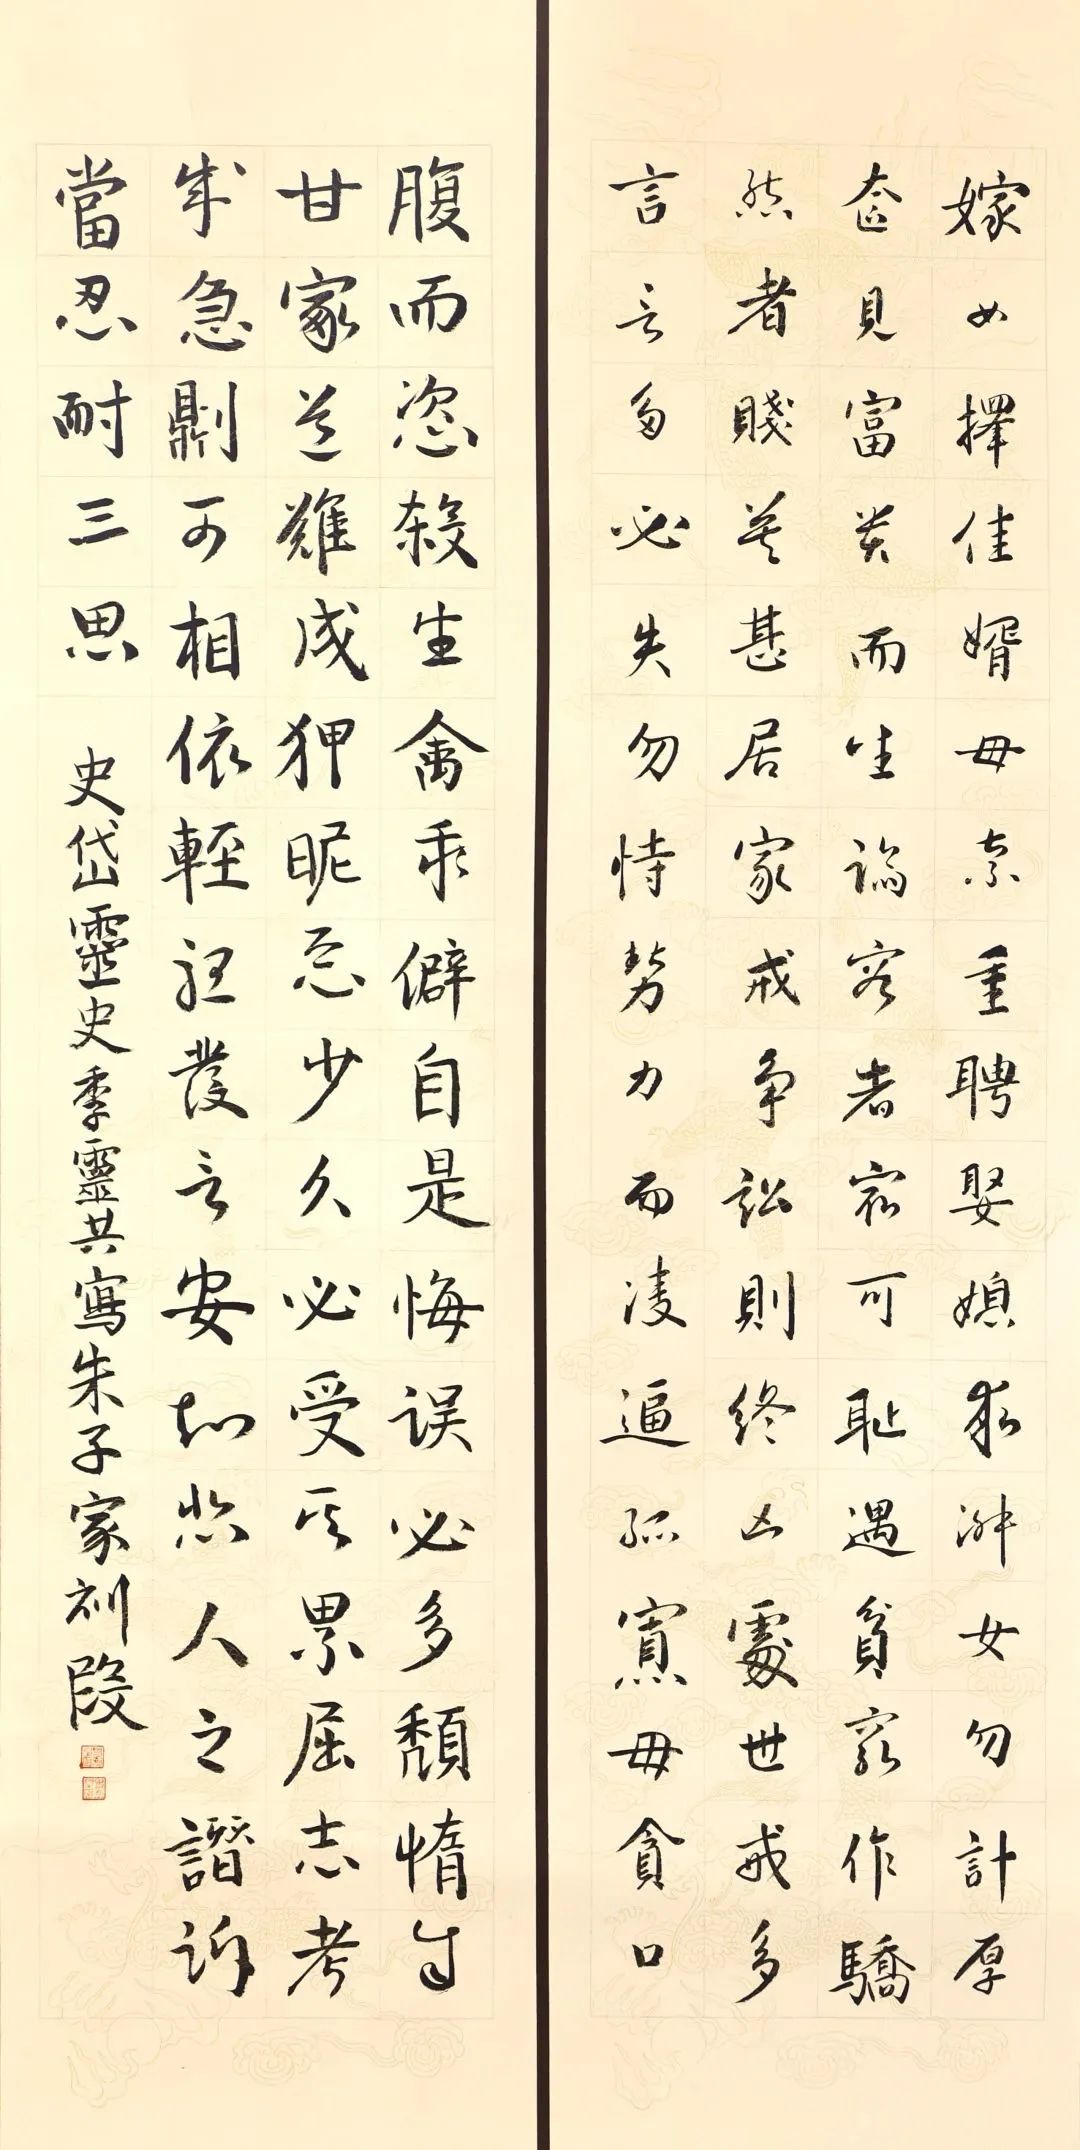 嫁女擇佳婿毋索重聘娶媳求淑女勿計厚
奩見富貴而生諂容者最可耻遇貧窮作驕
態者賤莫甚居家戒争訟則終凶處世戒多
言言多必失勿恃勢力而凌逼孤寡毋貪口
腹而恣殺生禽乖僻自是悔誤必多頹惰自
甘家道難成狎昵惡少久必受其累屈志考
成急則可相依輕聽發言安知非人之譖訴
當忍耐三思 史岱靈史季靈共寫朱子家訓段